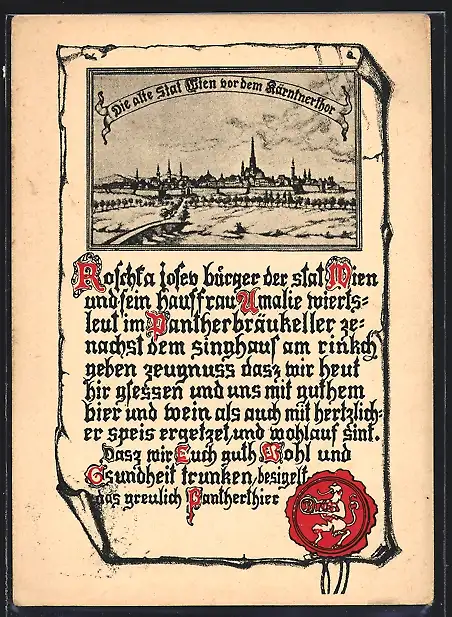 Die alte Stat Wien vor dem Kärntnerthor
Roschka iosev bürger der stat Wien
und sein hauffrau Amalie wierts=
leut im Pantherbräukeller ze=
nachst dem singhauf am rinksch
geben zeugnuss dasz wir heut
hir gsessen und uns mit guthem
bier und wein als auch mit hertzlich=
er speis ergetzet, und wohlauf sint.
Dasz wir Euch guth Wohl und
Gsundheit trunken, besigelt
das greulich Pantherthier